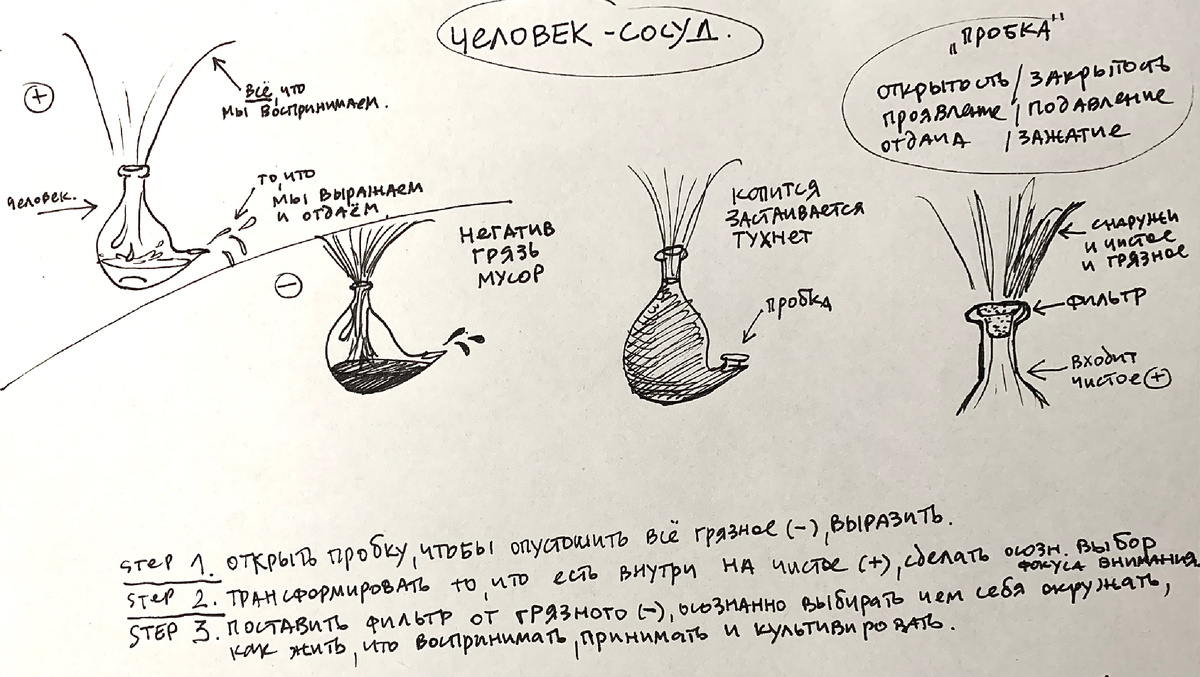 ЧЕЛОВЕК - СОСУД.
+
ВСЁ, ЧТО
МЫ ВОСПРИНИМАЕМ.
ЧЕЛОВЕК.
ТО, ЧТО
МЫ ВЫРАЖАЕМ
И ОТДАЁМ
-
НЕГАТИВ
ГРЯЗЬ
МУСОР
КОПИТСЯ
ЗАСТАИВАЕТСЯ
ТУХНЕТ
ПРОБКА
„ПРОБКА"
ОТКРЫТОСТЬ / ЗАКРЫТОСТЬ
ПРОЯВЛЕНИЕ / ПОДАВЛЕНИЕ
ОТДАЧА / ЗАЖАТИЕ
СНАРУЖИ
И ЧИСТОЕ
И ГРЯЗНОЕ
ФИЛЬТР
ВХОДИТ
ЧИСТОЕ +
STEP 1. ОТКРЫТЬ ПРОБКУ, ЧТОБЫ ОПУСТОШИТЬ ВСЁ ГРЯЗНОЕ (-), ВЫРАЗИТЬ.
STEP 2. ТРАНСФОРМИРОВАТЬ ТО, ЧТО ЕСТЬ ВНУТРИ НА ЧИСТОЕ (+), СДЕЛАТЬ ОСОЗН. ВЫБОР
ФОКУСА ВНИМАНИЯ.
STEP 3. ПОСТАВИТЬ ФИЛЬТР ОТ ГРЯЗНОГО (-), ОСОЗНАННО ВЫБИРАТЬ ЧЕМ СЕБЯ ОКРУЖАТЬ,
КАК ЖИТЬ, ЧТО ВОСПРИНИМАТЬ, ПРИНИМАТЬ И КУЛЬТИВИРОВАТЬ.